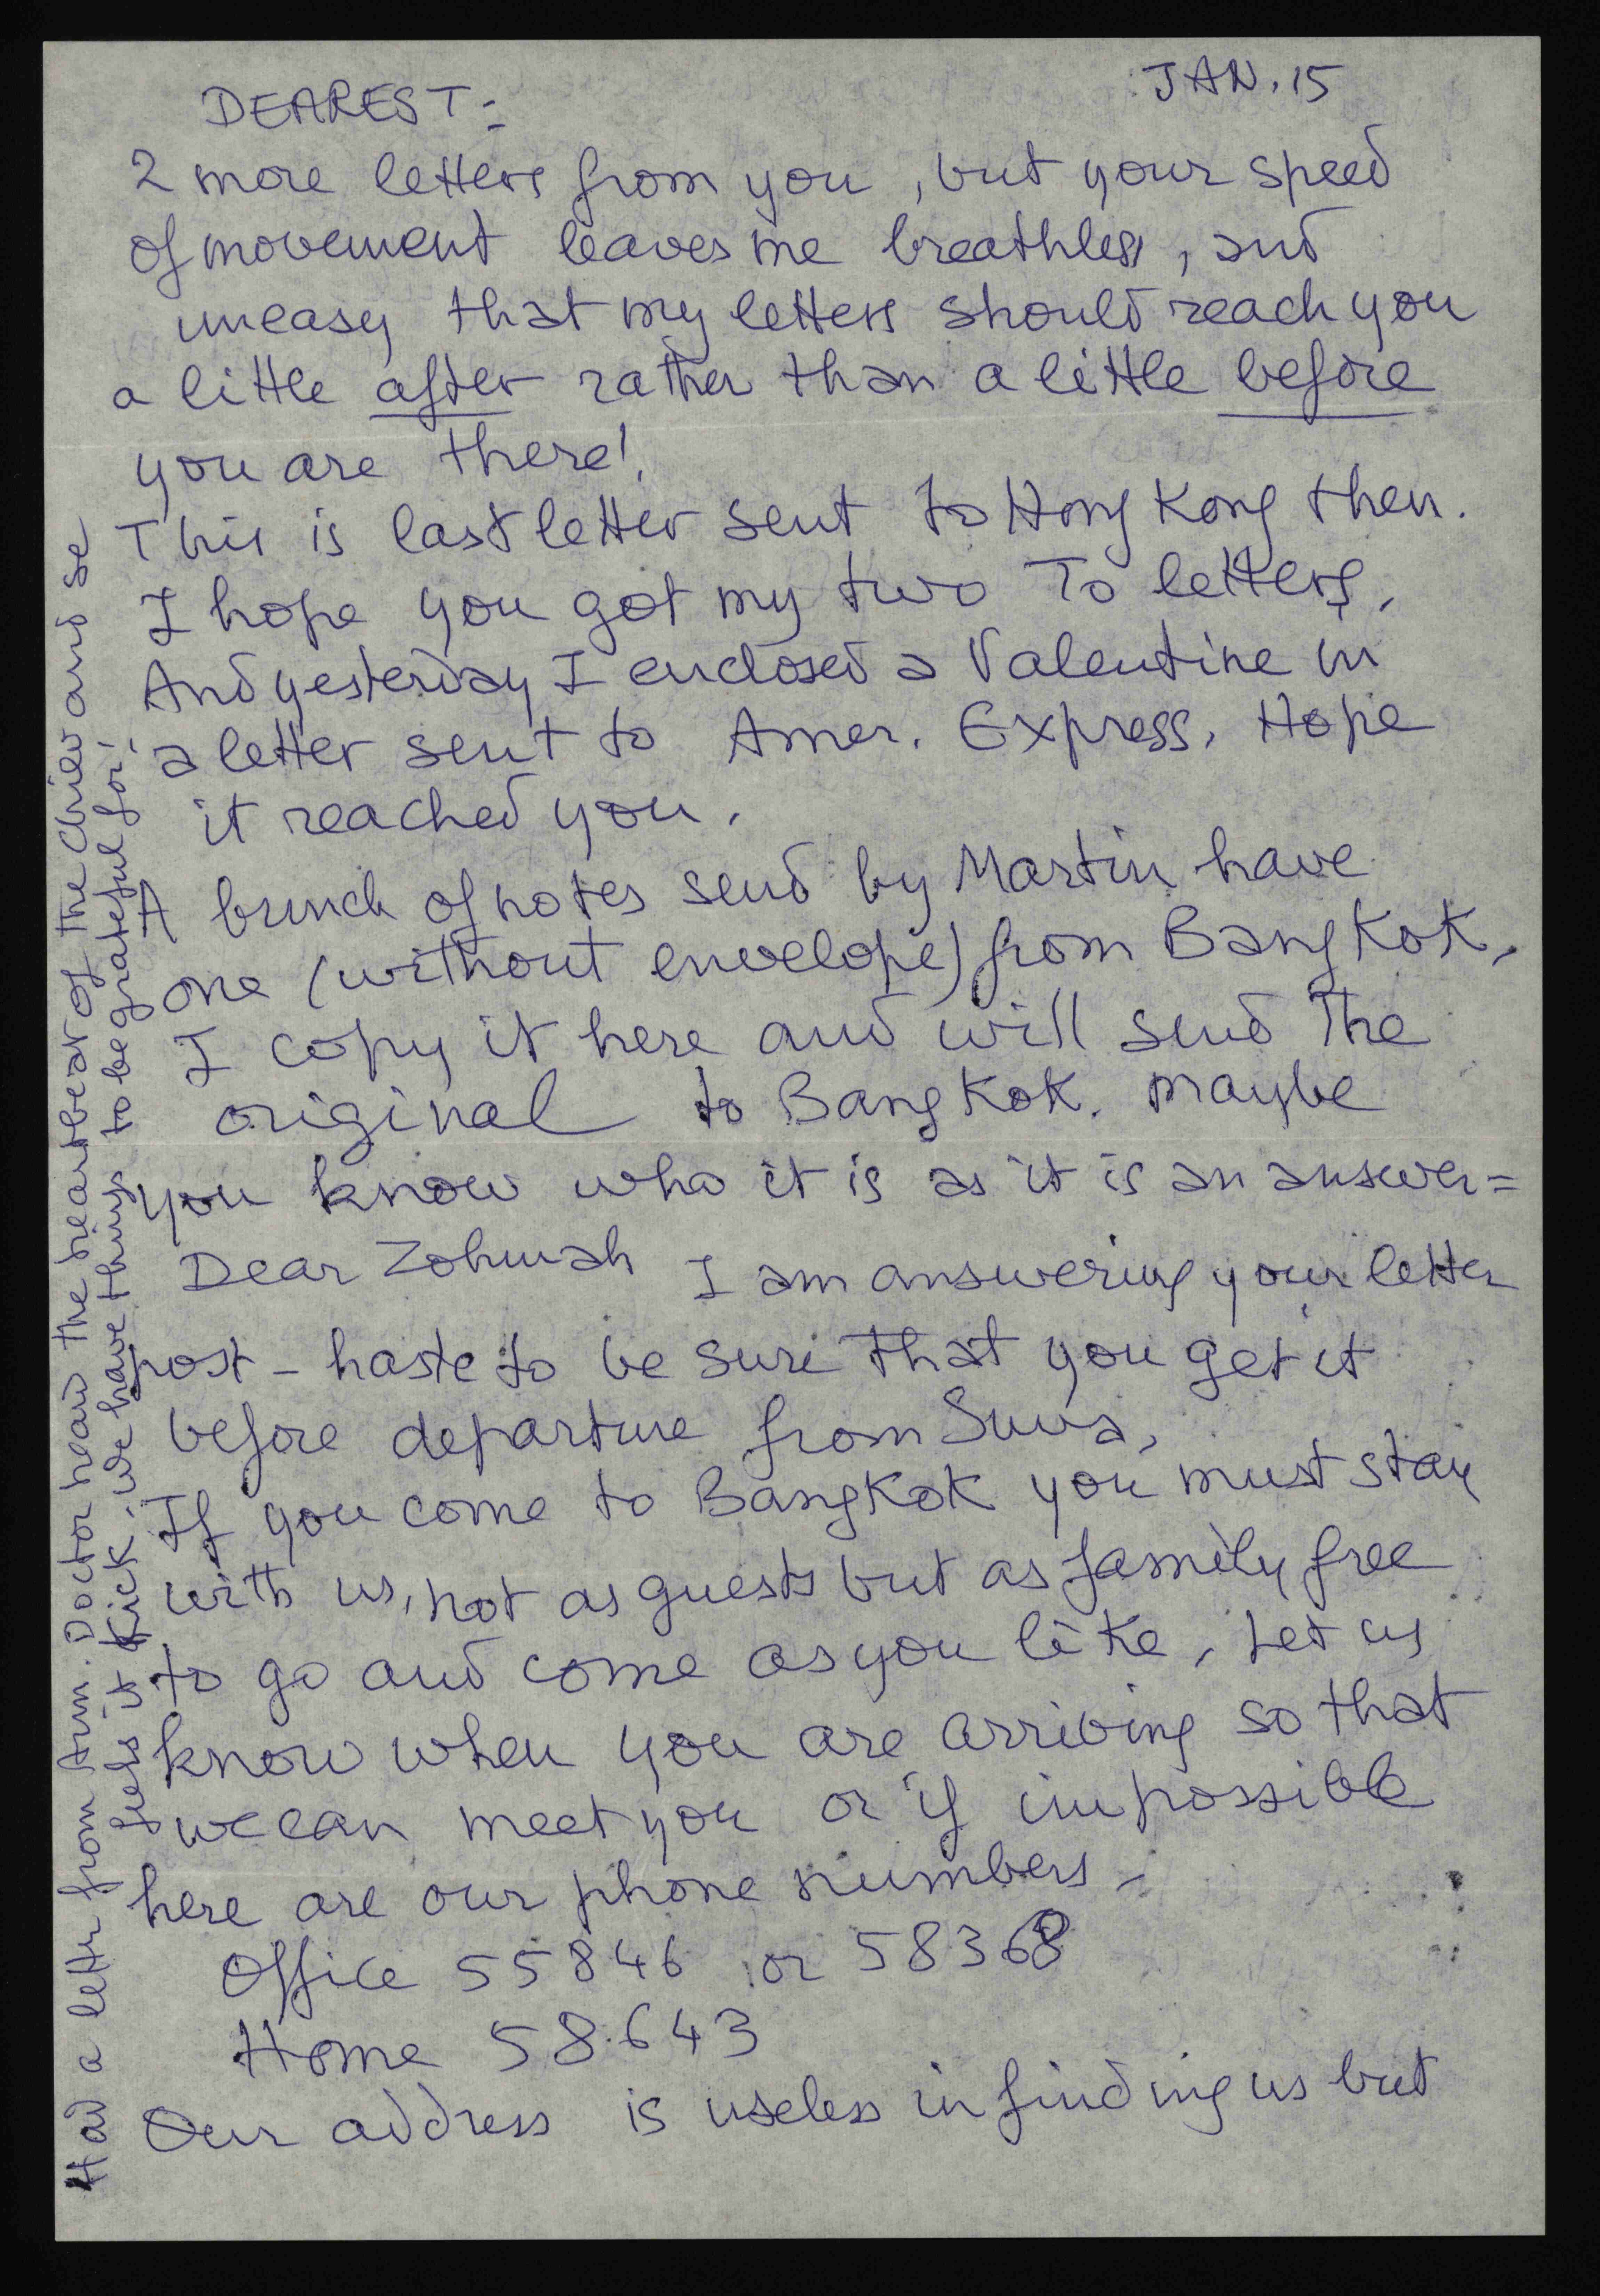 JAN. 15
DEAREST:
2 more letters from you, but your speed
of movement leaves me breathless, and
uneasy that my letters should reach you
a little after rather than a little before
you are there!
This is last letter sent to Hong Kong then.
I hope you got my two To letters.
And yesterday I enclosed a Valentine in
a letter sent to Amer. Express. Hope
it reached you.
A bunch of notes send by Martin have
one (without envelope) from Bangkok.
I copy it here and will send the
original to Bangkok. Maybe
you know who it is as it is an answer =
Dear Zohmah I am answering your letter
post-haste to be sure that you get it
before departure from Suva.
If you come to Bangkok you must stay
with us, not as guests but as family free
to go and come as you like. Let us
know when you are arriving so that
we can meet you or if impossible
here are our phone numbers -
Office 55846 or 58368
Home 58.643
Our address is useless in finding us but
Had a letter from Ann. Doctor heard the heartbeat of the child and se
feels it kick, we have things to be grateful for!